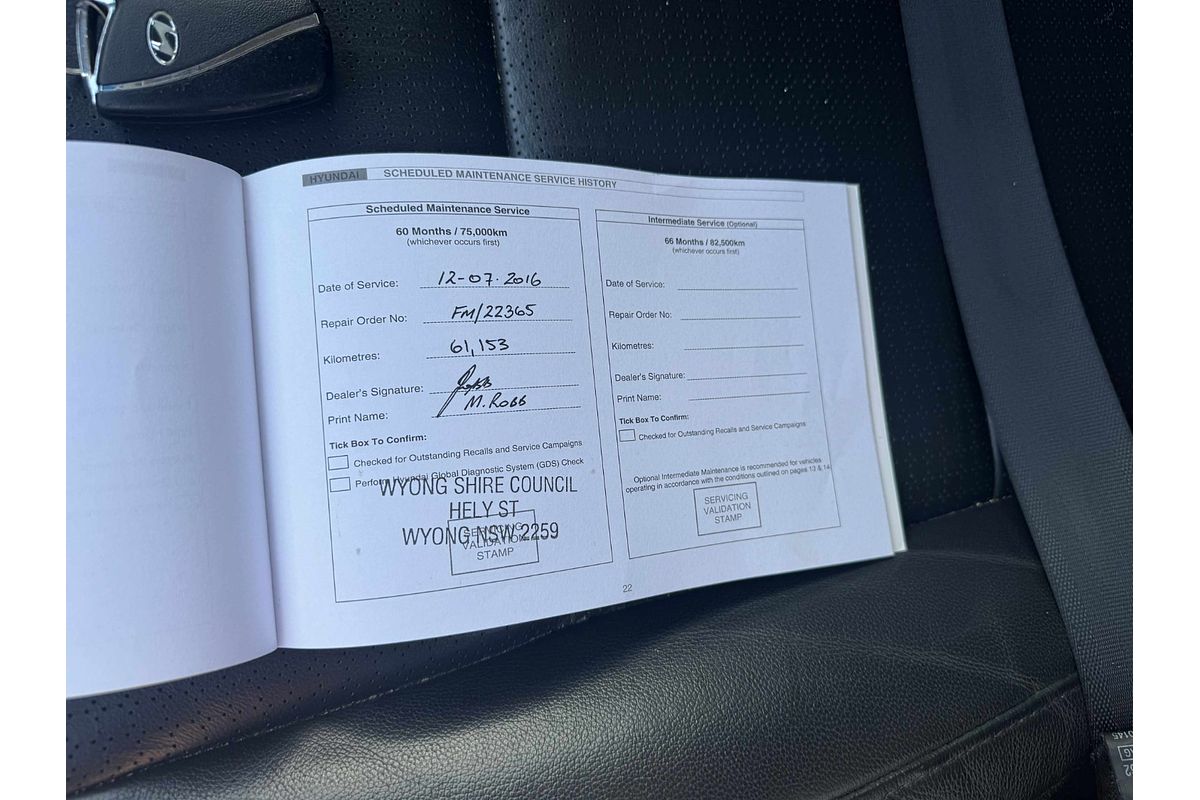 HYUNDAI SCHEDULED MAINTENANCE SERVICE HISTORY
Scheduled Maintenance Service
60 Months / 75,000km
(whichever occurs first)
Date of Service: 12-07-2016
Repair Order No: FM/22365
Kilometres: 61,153
Dealer's Signature:
Print Name: M. ROBB
Tick Box To Confirm:
Checked for Outstanding Recalls and Service Campaigns
Perform Hyundai Global Diagnostic System (GDS) Check
WYONG SHIRE COUNCIL
HELY ST
WYONG NSW 2259
SERVICING
VALIDATION
STAMP
Intermediate Service (Optional)
66 Months / 82,500km
(whichever occurs first)
Date of Service:
Repair Order No:
Kilometres:
Dealer's Signature:
Print Name:
Tick Box To Confirm:
Checked for Outstanding Recalls and Service Campaigns
Optional Intermediate Maintenance is recommended for vehicles
operating in accordance with the conditions outlined on pages 13 & 14
SERVICING
VALIDATION
STAMP
22